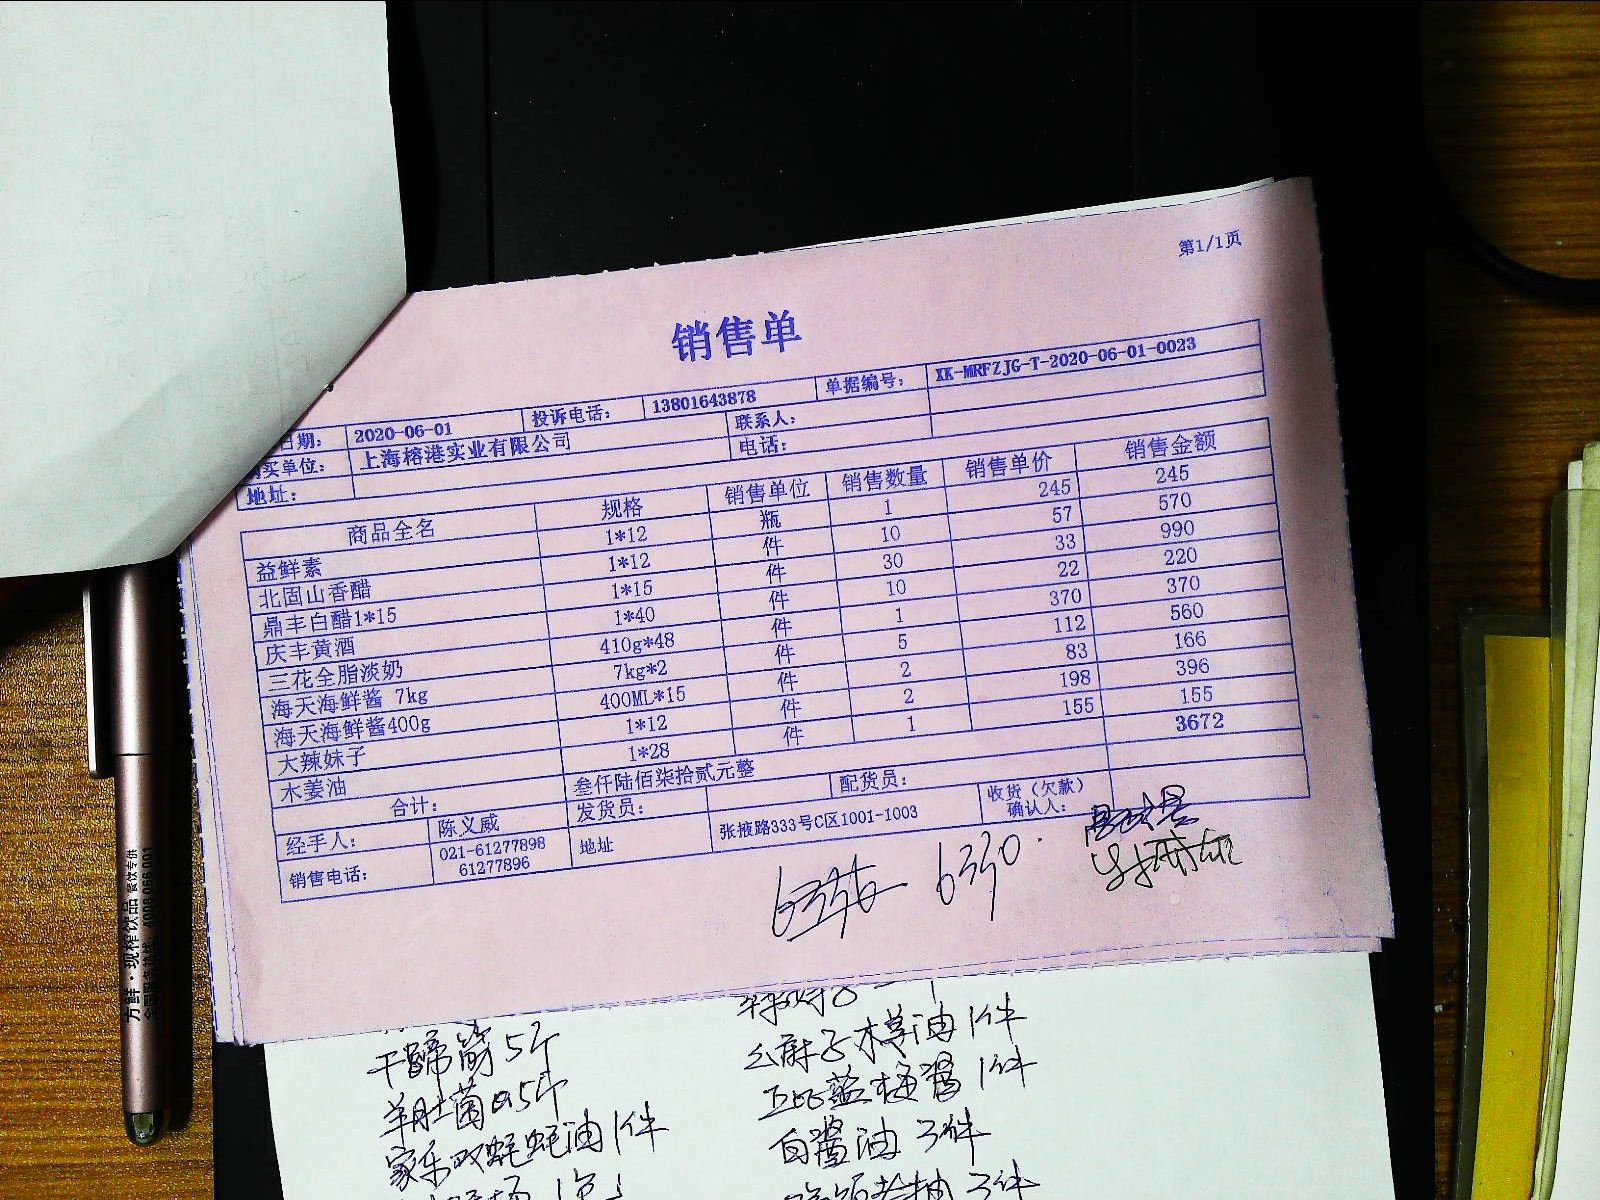 第1/1页
销售单
日期: 2020-06-01 投诉电话: 13801643878 单据编号: XK-MRFZJG-T-2020-06-01-0023
购买单位: 上海榕港实业有限公司 联系人:
地址: 电话:
商品全名 规格 销售单位 销售数量 销售单价 销售金额
益鲜素 1*12 瓶 1 245 245
北固山香醋 1*12 件 10 57 570
鼎丰白醋1*15 1*15 件 30 33 990
庆丰黄酒 1*40 件 10 22 220
三花全脂淡奶 410g*48 件 1 370 370
海天海鲜酱 7kg 7kg*2 件 5 112 560
海天海鲜酱400g 400ML*15 件 2 83 166
大辣妹子 1*12 件 2 198 396
木姜油 1*28 件 1 155 155
合计: 叁仟陆佰柒拾贰元整 3672
经手人: 陈义威 发货员: 配货员: 收货（欠款）确认人:
销售电话: 021-61277898 61277896 地址 张掖路333号C区1001-1003
干蹄筋 5斤
羊肚菌 0.5斤
家乐双蚝蚝油 1件
1件
1件
白酱油 3件
3件
方鲜·现榨饮品 餐饮专供